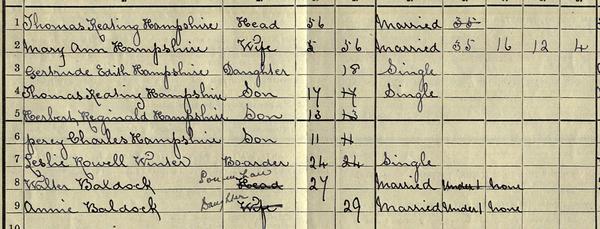 1 Thomas Keating Hampshire Head 56 Married 35
2 Mary Ann Hampshire Wife 56 Married 35 16 12 4
3 Gertrude Edith Hampshire Daughter 18 Single
4 Thomas Keating Hampshire Son 17 17 Single
5 Herbert Reginald Hampshire Son 13 13
6 Percy Charles Hampshire Son 11 11
7 Leslie Rowell Winter Boarder 24 24 Single
8 Walter Baldock Son in Law Head 27 Married Under 1 None
9 Annie Baldock Daughter Wife 29 Married Under 1 None
10